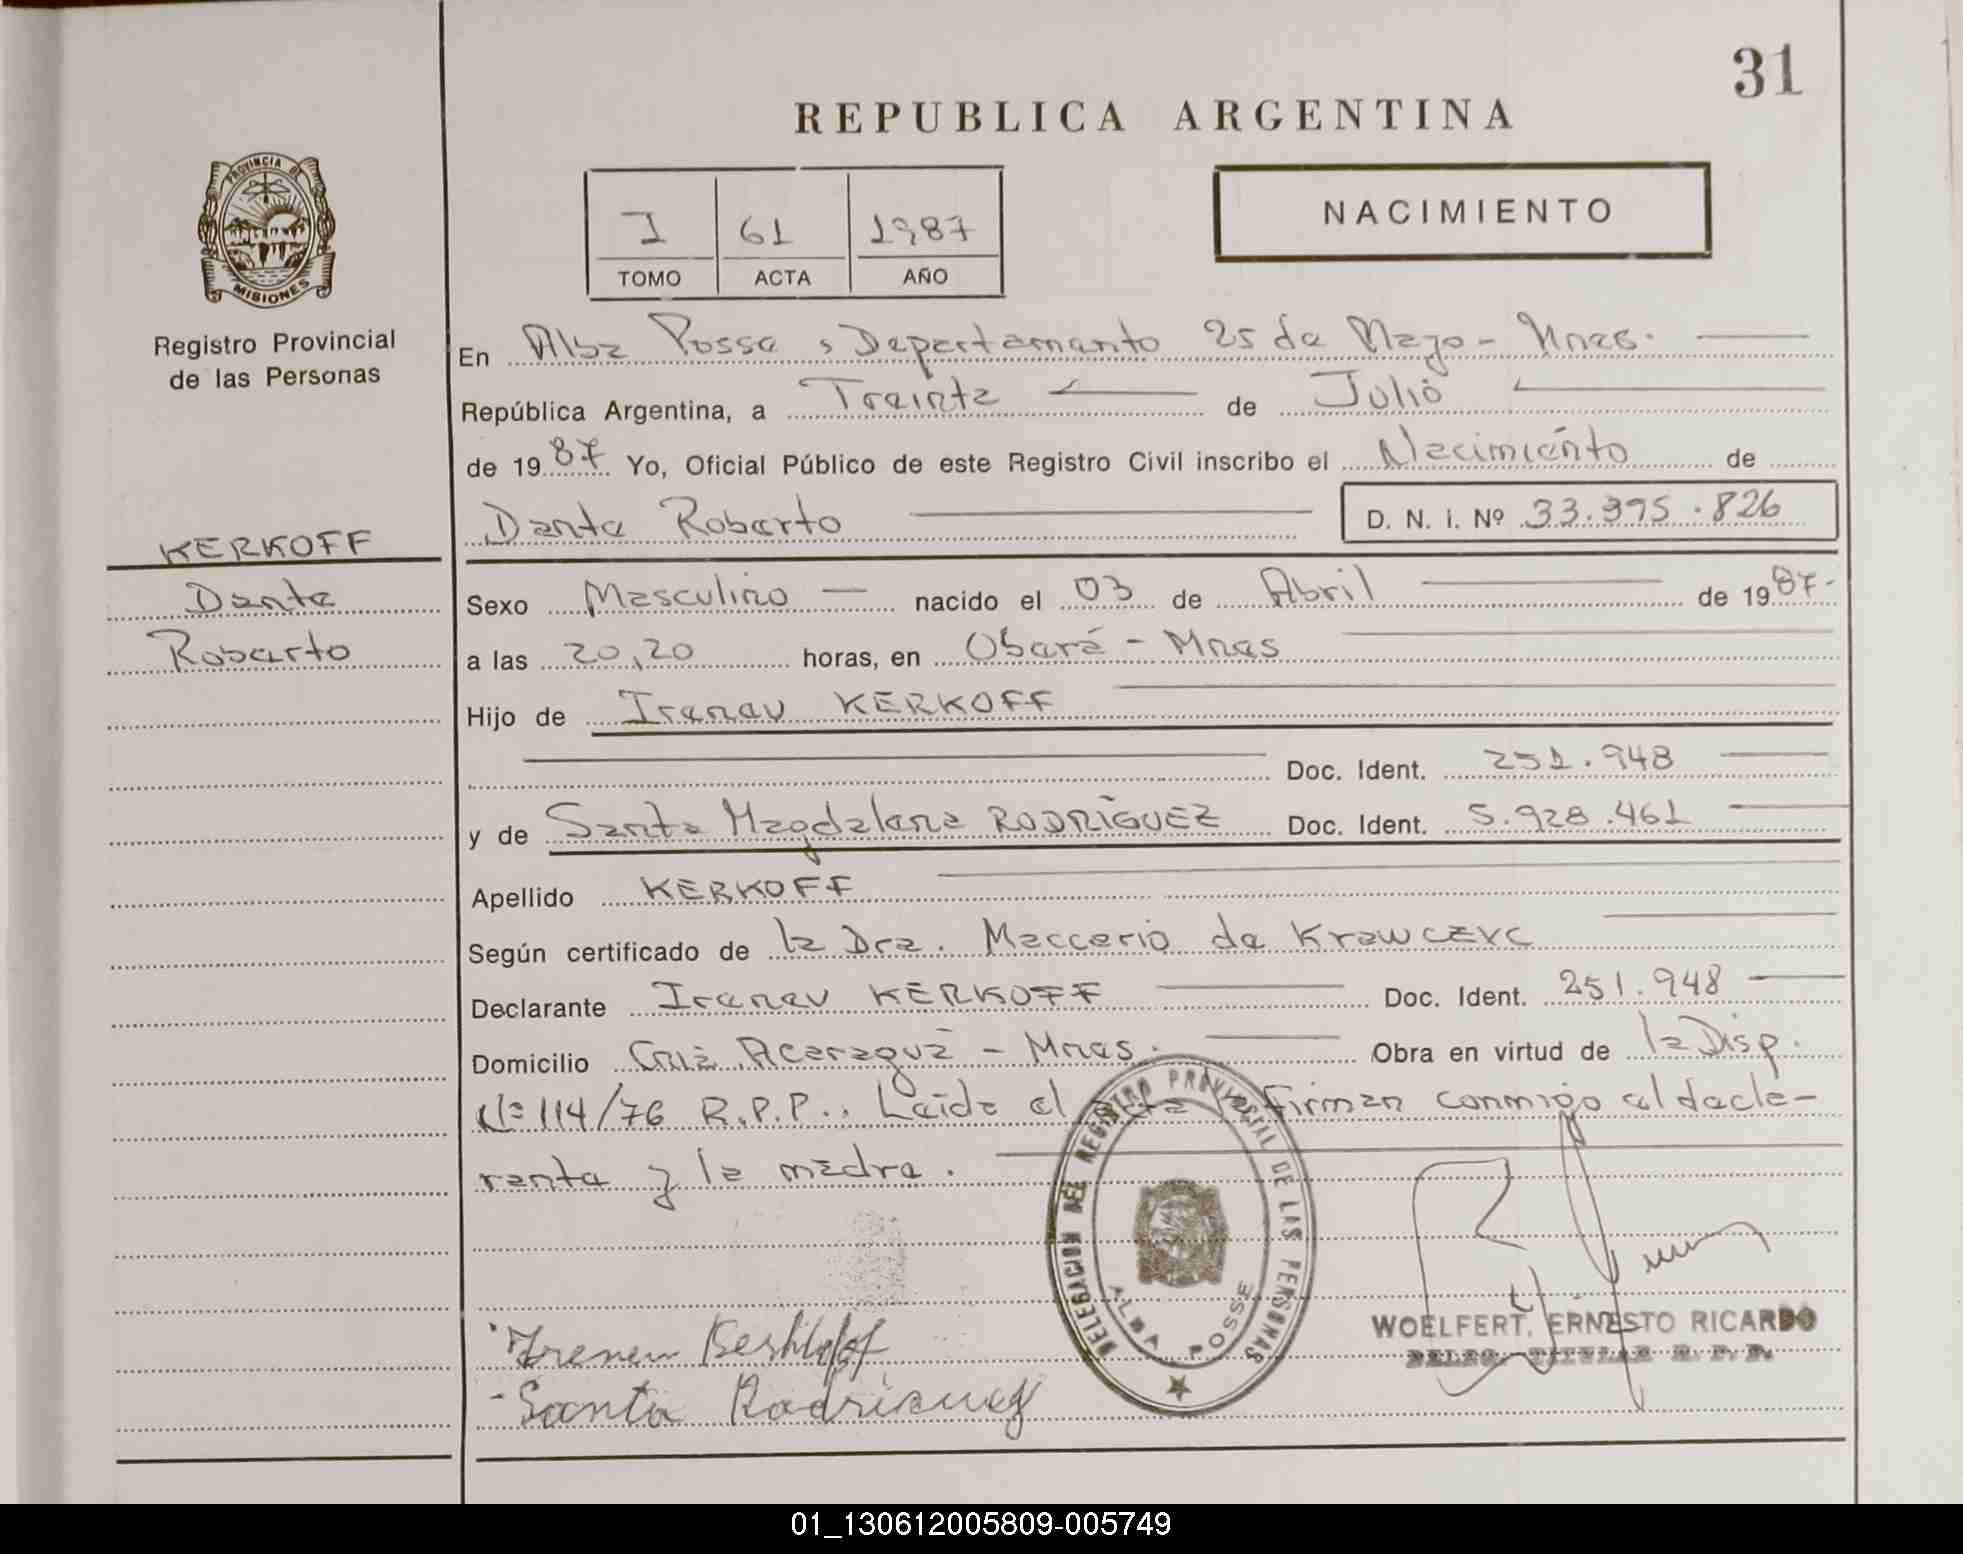 31
REPUBLICA ARGENTINA
PROVINCIA DE
MISIONES
Registro Provincial
de las Personas
I 61 1987
TOMO ACTA AÑO
NACIMIENTO
En Alba Posse, Departamento 25 de Mayo - Mnes.
República Argentina, a Treinta de Julio
de 1987 Yo, Oficial Público de este Registro Civil inscribo el Nacimiento de
Dante Roberto D. N. I. Nº 33.395.826
KERKOFF
Dante
Roberto
Sexo Masculino nacido el 03 de Abril de 1987.
a las 20,20 horas, en Oberá - Mnes
Hijo de Ireneu KERKOFF
Doc. Ident. 251.948
y de Santa Magdalena RODRÍGUEZ Doc. Ident. 5.928.461
Apellido KERKOFF
Según certificado de la Dra. Maccerio de
Declarante Ireneu KERKOFF Doc. Ident. 251.948
Domicilio Acaraguá - Mnes. Obra en virtud de la Disp.
Nº 114/76 R.P.P.. Leída el Acta firman conmigo el decla-
rante y la madre.
DELEGACION DEL REGISTRO PROVINCIAL DE LAS PERSONAS
ALBA POSSE
Ireneu
Santa Rodriguez
WOELFERT, ERNESTO RICARDO
DELEG. TITULAR R. P. P.
01_130612005809-005749